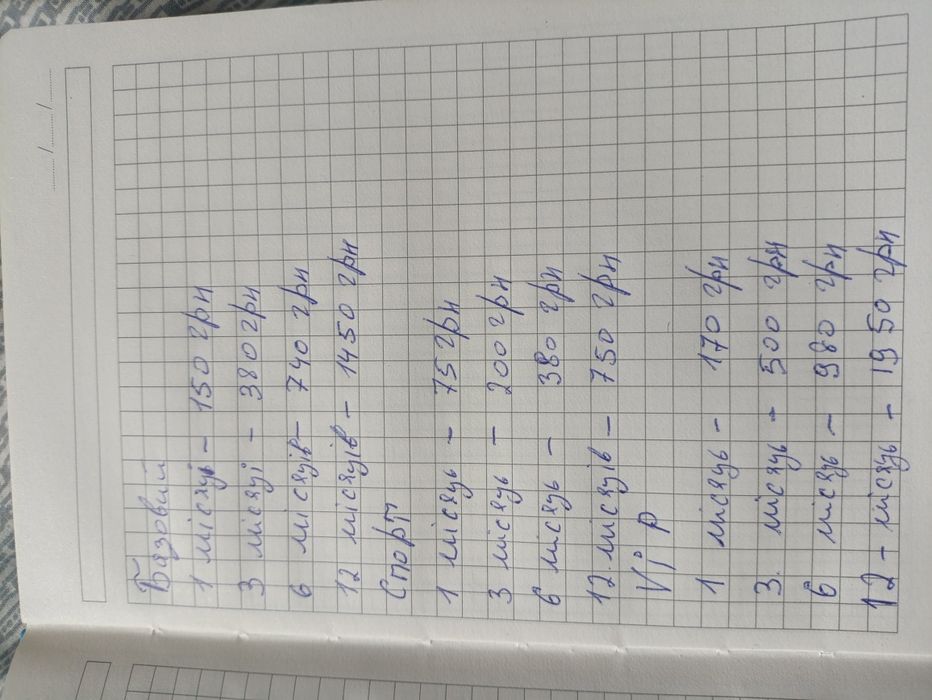 Базовий
1 місяці - 150 грн
3 місяці - 380 грн
6 місяців - 740 грн
12 місяців - 1450 грн
Спорт
1 місяць - 75 грн
3 місяць - 200 грн
6 місяць - 380 грн
12 місяців - 750 грн
Vip
1 місяць - 170 грн
3. місяць - 500 грн
6 місяць - 980 грн
12 - місяць - 1950 грн